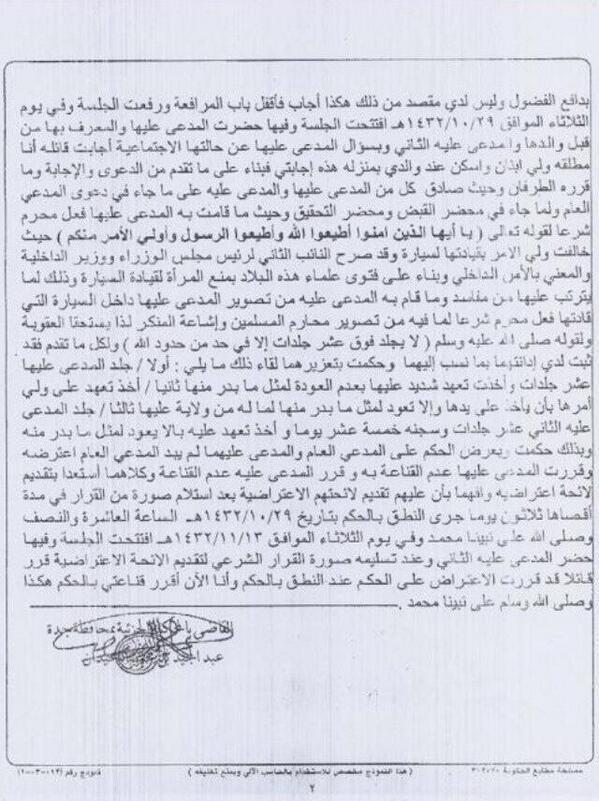 بدافع الفضول وليس لدي مقصد من ذلك هكذا أجاب فأقفل باب المرافعة ورفعت الجلسة وفي يوم
الثلاثاء الموافق ١٤٣٢/١٠/٢٩هـ افتتحت الجلسة وفيها حضرت المدعى عليها والمعرف بها من
قبل والدها والمدعى عليه الثاني وبسؤال المدعى عليها عن حالتها الاجتماعية أجابت قائله أنا
مطلقه ولي ابنان واسكن عند والدي بمنزله هذه إجابتي فبناء على ما تقدم من الدعوى والإجابة وما
قرره الطرفان وحيث صادق كل من المدعى عليها والمدعى عليه على ما جاء في دعوى المدعي
العام ولما جاء في محضر القبض ومحضر التحقيق وحيث ما قامت به المدعى عليها فعل محرم
شرعا لقوله تعالى ( يا أيها الذين امنوا أطيعوا الله وأطيعوا الرسول وأولي الأمر منكم ) حيث
خالفت ولي الامر بقيادتها لسيارة وقد صرح النائب الثاني لرئيس مجلس الوزراء ووزير الداخلية
والمعني بالأمن الداخلي وبناء على فتوى علماء هذه البلاد بمنع المرأة لقيادة السيارة وذلك لما
يترتب عليها من مفاسد وما قام به المدعى عليه من تصوير المدعى عليها داخل السيارة التي
قادتها فعل محرم شرعا لما فيه من تصوير محارم المسلمين وإشاعة المنكر لذا يستحقا العقوبة
ولقوله صلى الله عليه وسلم ( لا يجلد فوق عشر جلدات إلا في حد من حدود الله ) ولكل ما تقدم فقد
ثبت لدي إدانتهما بما نسب إليهما وحكمت بتعزيرهما لقاء ذلك ما يلي : أولا / جلد المدعى عليها
عشر جلدات وأخذت تعهد شديد عليها بعدم العودة لمثل ما بدر منها ثانيا / أخذ تعهد على ولي
أمرها بأن يأخذ على يدها وإلا تعود لمثل ما بدر منها لما له من ولاية عليها ثالثا / جلد المدعى
عليه الثاني عشر جلدات وسجنه خمسة عشر يوما و أخذ تعهد عليه بالا يعود لمثل ما بدر منه
وبذلك حكمت وبعرض الحكم على المدعي العام والمدعى عليهما لم يبد المدعي العام اعتراضه
وقررت المدعى عليها عدم القناعة به و قرر المدعى عليه عدم القناعة وكلاهما أستعدا بتقديم
لائحة اعتراضيه وافهما بأن عليهم تقديم لائحتهم الاعتراضية بعد استلام صورة من القرار في مدة
أقصاها ثلاثون يوما جرى النطق بالحكم بتاريخ ١٤٣٢/١٠/٢٩هـ الساعة العاشرة والنصف
وصلى الله على نبينا محمد وفي يوم الثلاثاء الموافق ١٤٣٢/١١/١٣هـ افتتحت الجلسة وفيها
حضر المدعى عليه الثاني وعند تسليمه صورة القرار الشرعي لتقديم الائحة الاعتراضية قرر
قائلا قد قررت الاعتراض على الحكم عند النطق بالحكم وأنا الأن أقرر قناعتي بالحكم هكذا
وصلى الله وسلم على نبينا محمد .
القاضي بالمحكمة الجزئية بمحافظة جدة
عبد المجيد بن
مصلحة مطابع الحكومة
( هذا النموذج مخصص للاستخدام بالحاسب الآلي ويمنع تغليفه )
نموذج رقم
٢